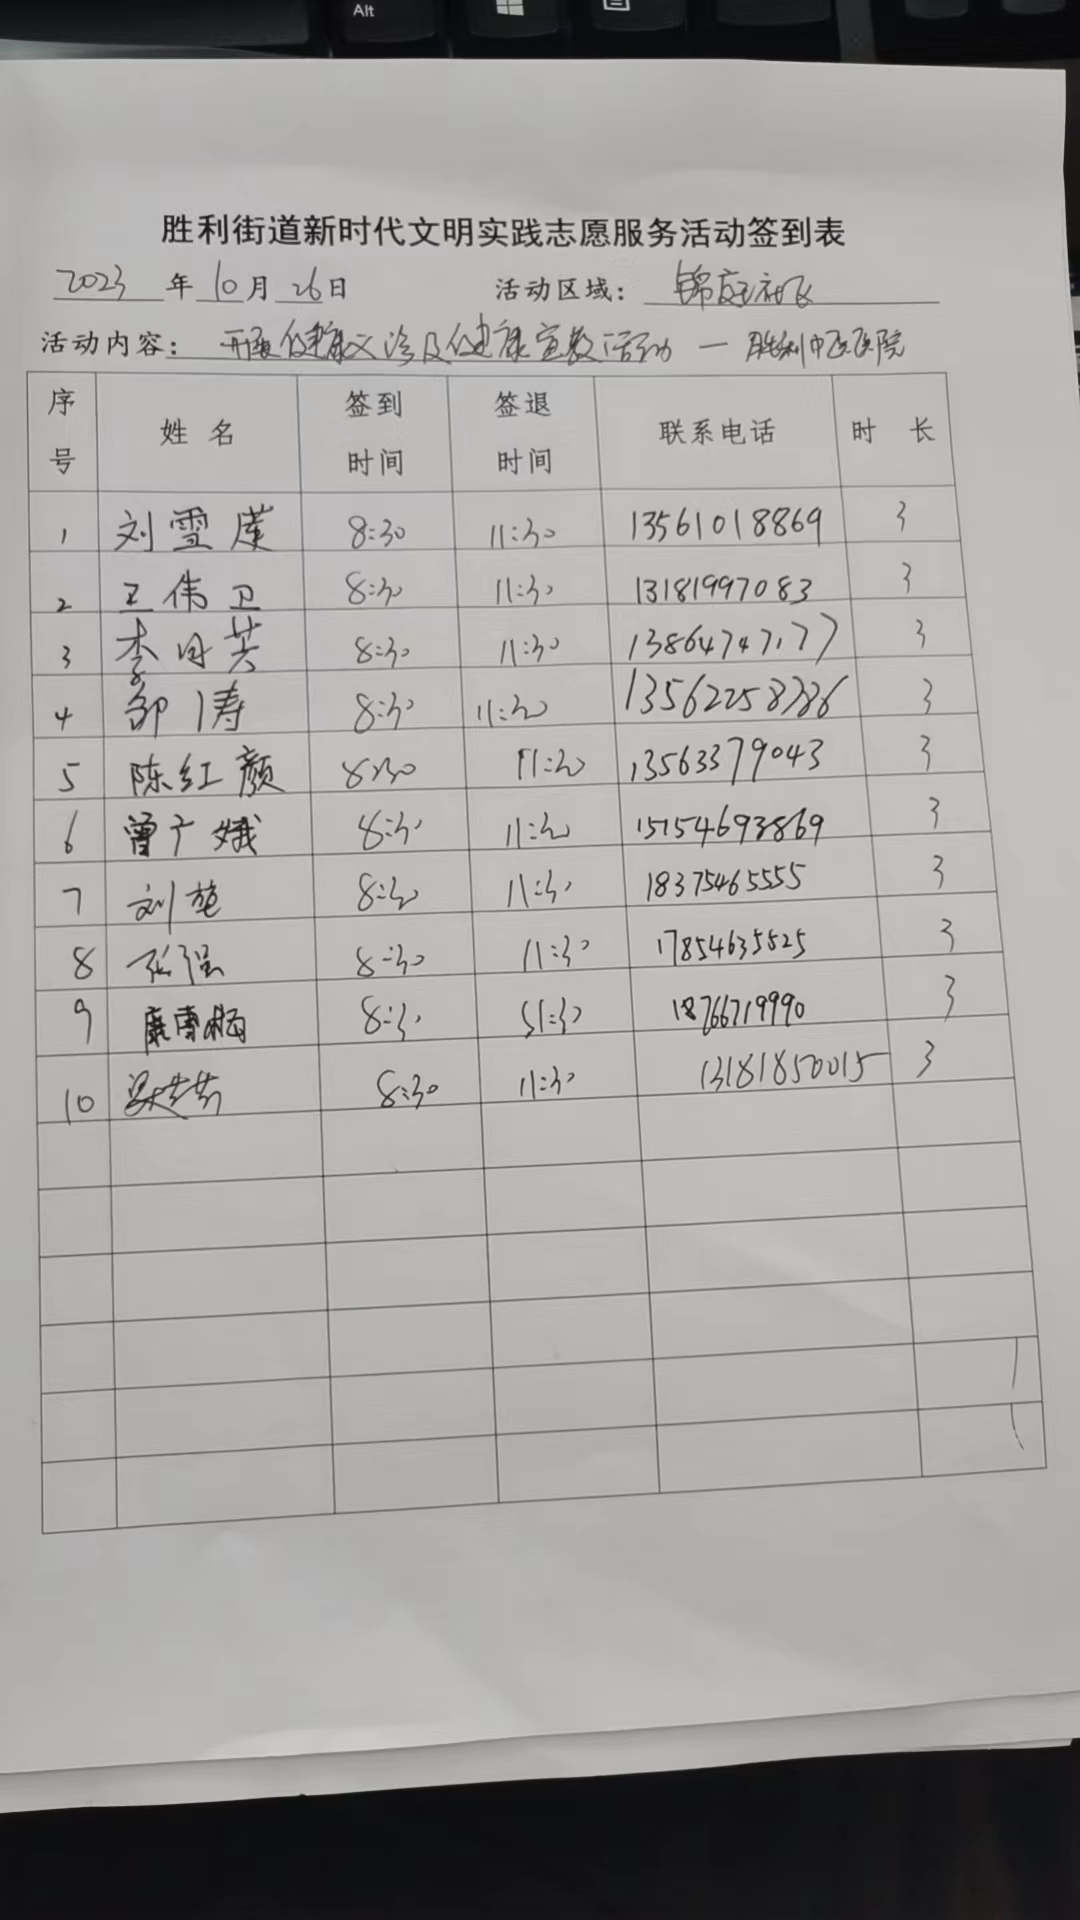 Alt
胜利街道新时代文明实践志愿服务活动签到表
2023 年 10 月 26 日 活动区域： 锦庭社区
活动内容： 开展健康义诊及健康宣教活动 — 胜利中医医院
序号 姓名 签到时间 签退时间 联系电话 时长
1 刘雪 8:30 11:30 13561018869 3
2 王伟卫 8:30 11:30 13181997083 3
3 李日芸 8:30 11:30 13864747177 3
4 邹涛 8:30 11:30 3
5 陈红颜 8:30 11:30 13563379043 3
6 曾广娥 8:30 11:30 15154693869 3
7 刘 8:30 11:30 18375465555 3
8 张强 8:30 11:30 17854635525 3
9 8:30 11:30 18766719990 3
10 8:30 11:30 13181850015 3